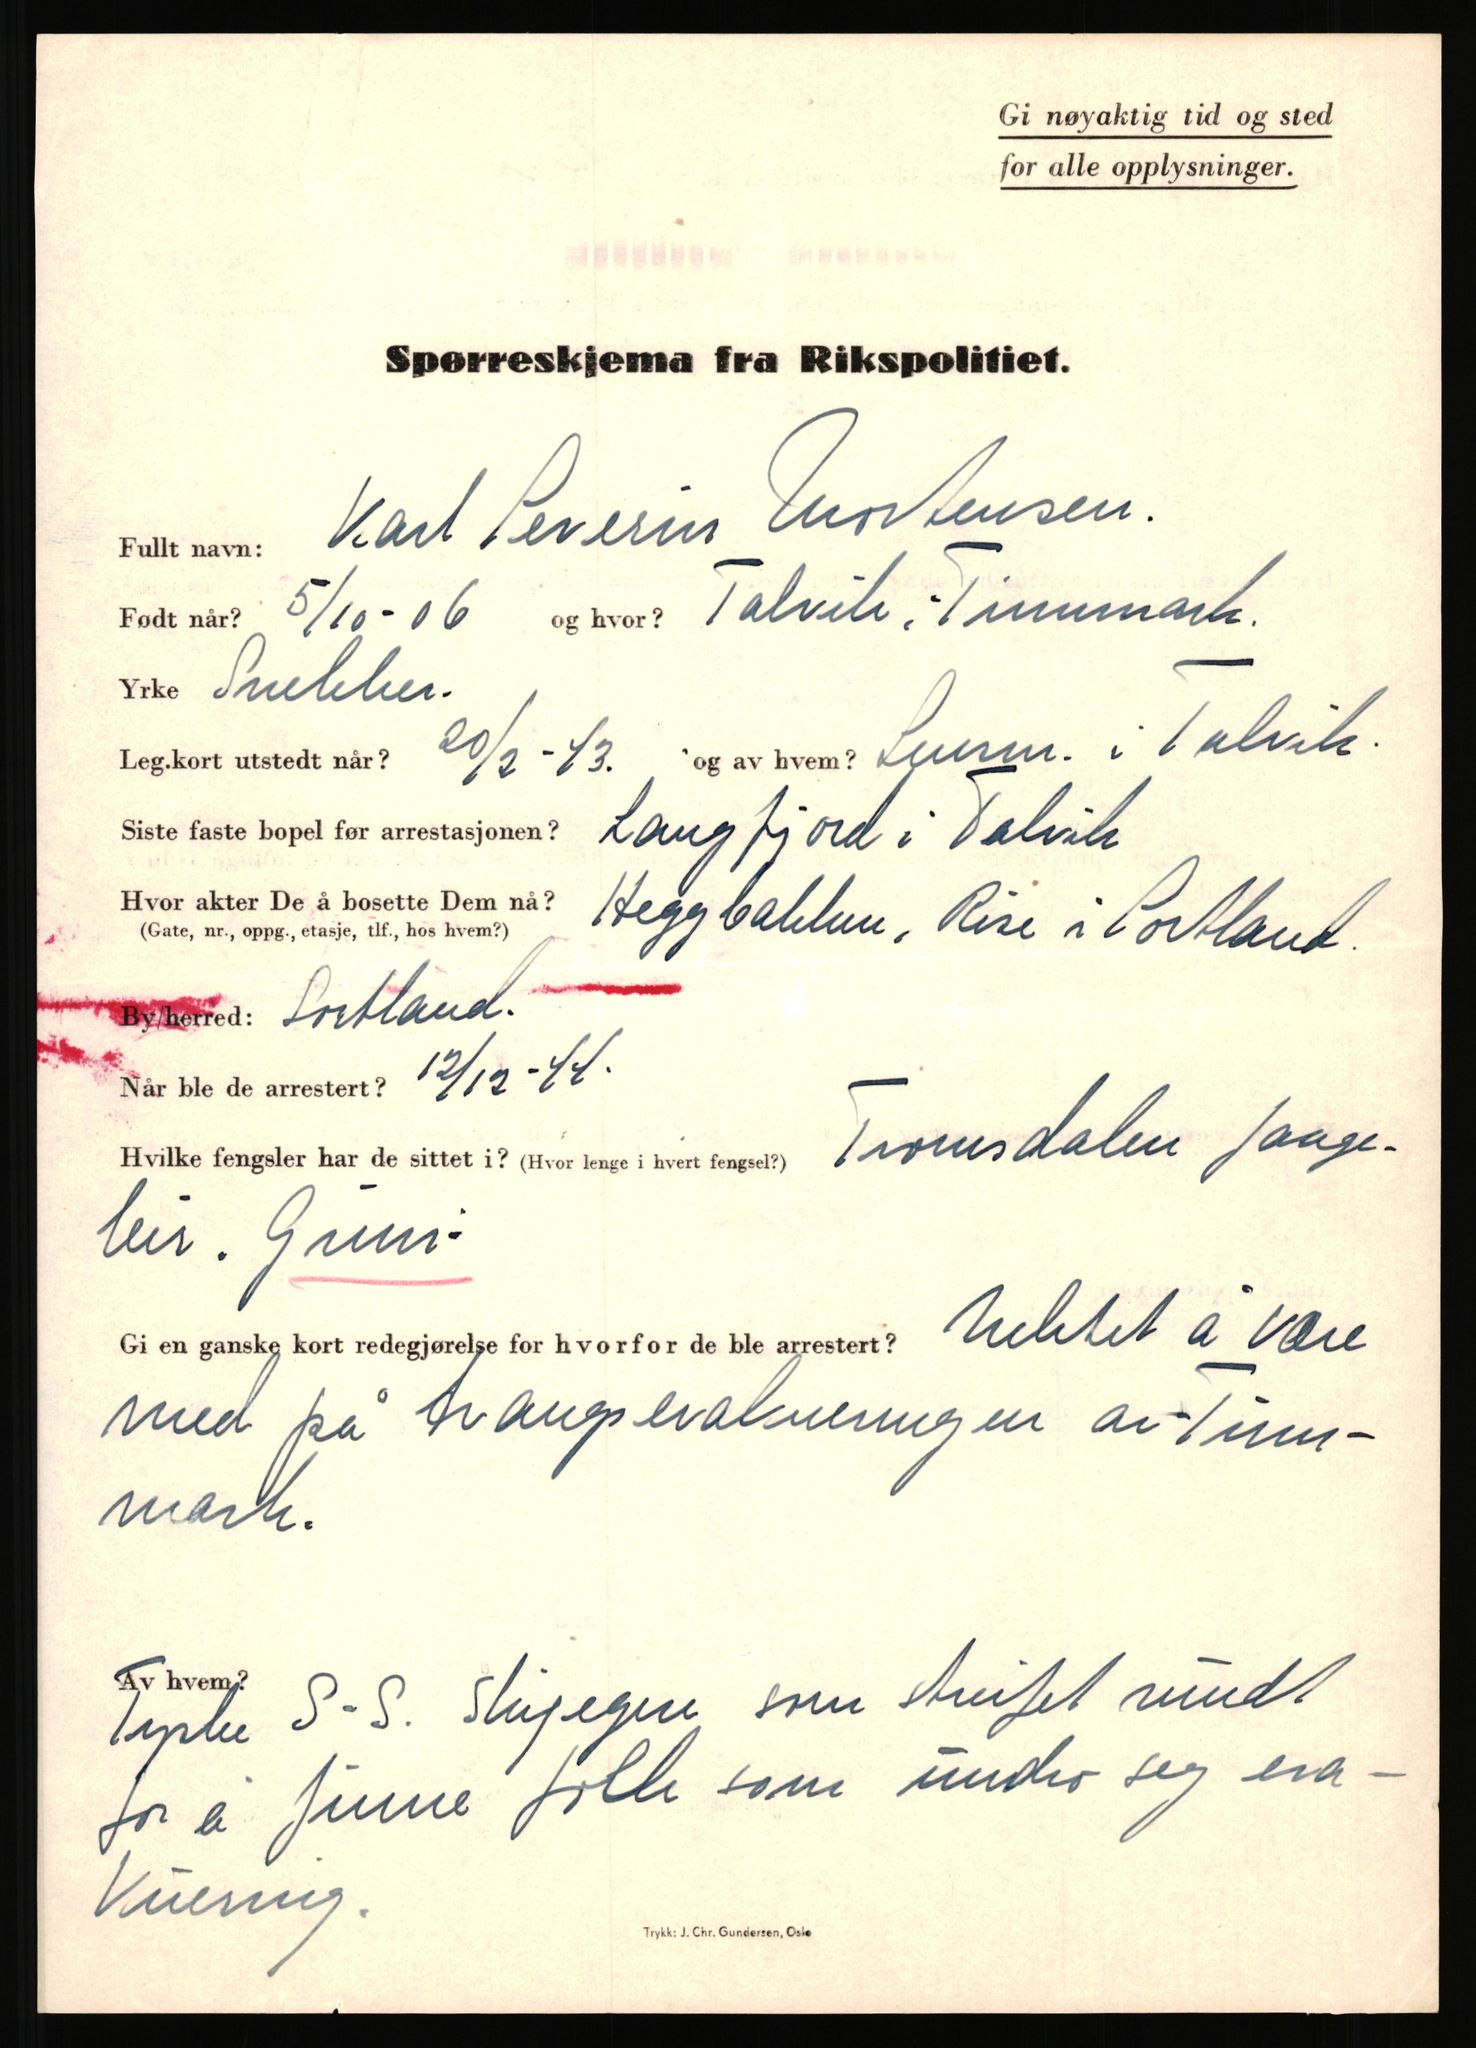 Gi nøyaktig tid og sted
for alle opplysninger.
Spørreskjema fra Rikspolitiet.
Fullt navn: Karl Severin Mortensen.
Født når? 5/10-06 og hvor? Talvik, Finnmark.
Yrke Snekker.
Leg.kort utstedt når? 20/2-43. og av hvem? Lensm. i Talvik.
Siste faste bopel før arrestasjonen? Langfjord i Talvik
Hvor akter De å bosette Dem nå? Heggbakken, Rise i Sortland.
(Gate, nr., oppg., etasje, tlf., hos hvem?)
By/herred: Sortland.
Når ble de arrestert? 12/12-44.
Hvilke fengsler har de sittet i? (Hvor lenge i hvert fengsel?) Tromsdalen fange-
leir. Grini.
Gi en ganske kort redegjørelse for hvorfor de ble arrestert? Nektet å være
med på tvangsevakueringen av Finn-
mark.
Av hvem?
Tyske S-S. skijegere som streifet rundt
for å finne folk som undro seg eva-
kuering.
Trykk: J. Chr. Gundersen, Oslo